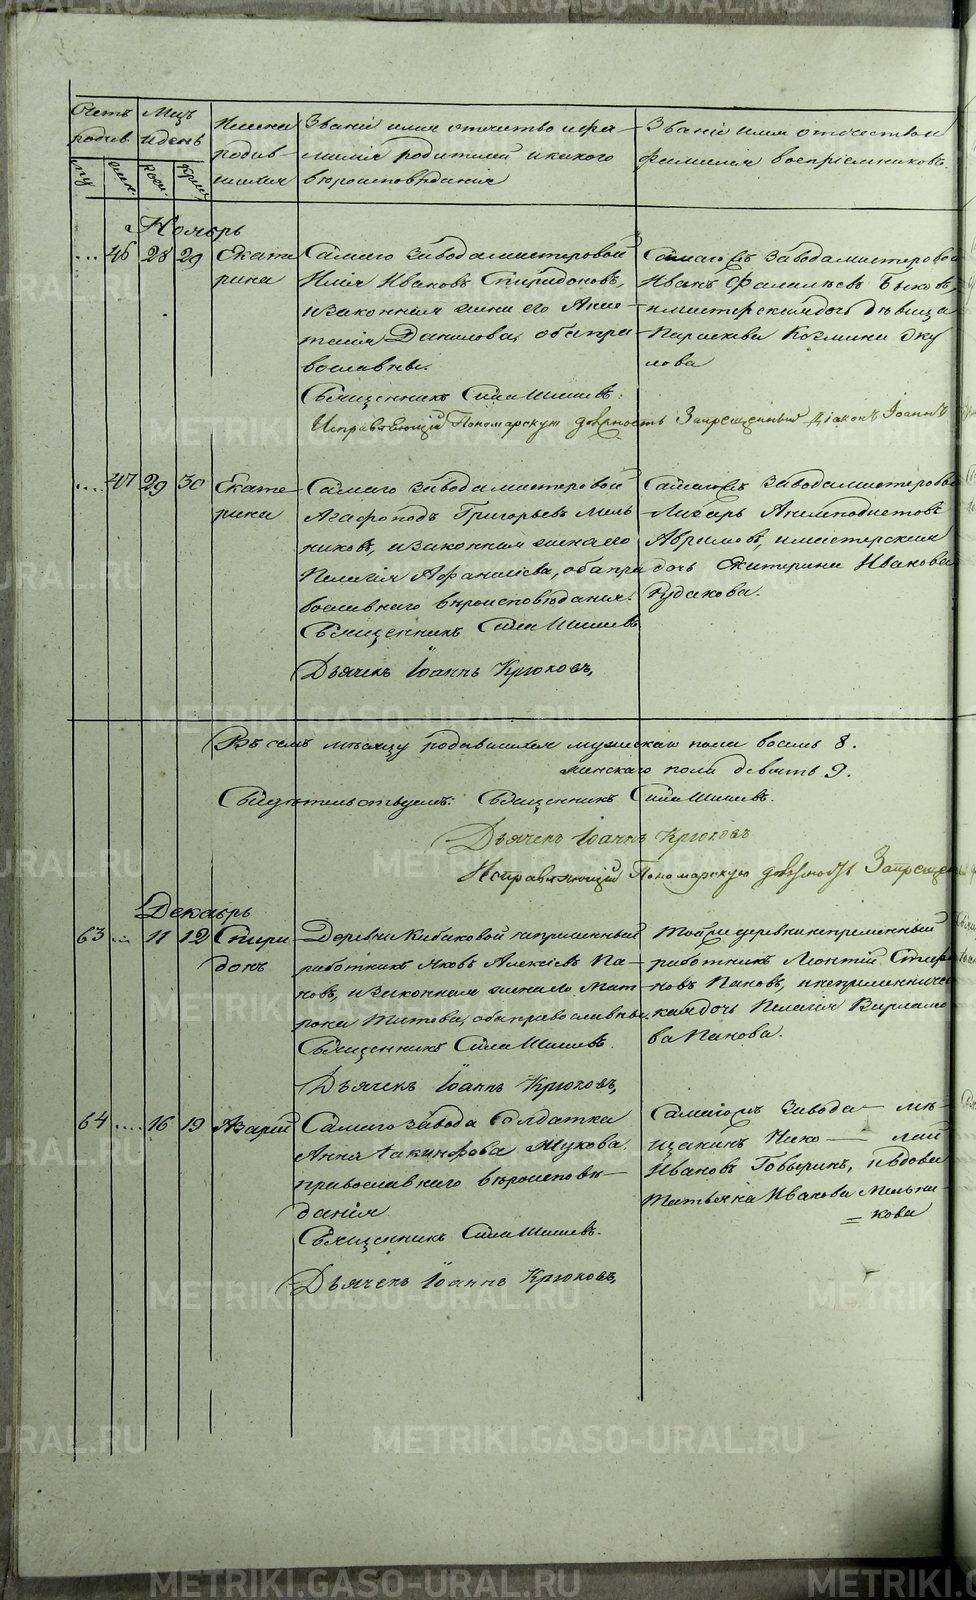 Счетъ родив.
муж.
жен.
Мцъ и день
рожд.
крещ.
Имена родив-
шихся
Званіе имя отчество и фа-
милія родителей и какого
вѣроисповѣданія
Званіе имя отчество и
фамилія воспріемниковъ.
Ноябрь
... 46 28 29 Екате
рина
Самаго завода мастеровой
Илія Ивановъ Спиридоновъ,
и законная жена его Анас-
тасія Данилова, оба пра
вославны.
Священникъ Сила Шишевъ.
Исправляющій Пономарскую должность Запрещенный Діаконъ Іоаннъ
Самаго жъ завода мастеровой
Иванъ Быковъ,
и мастерская дочь дѣвица
Параскева Козмина
лова
... 47 29 30 Екате-
рина
Самаго завода мастеровой
Агафоподъ Григорьевъ Мель
никовъ, и законная жена его
Пелагія Афанасіева, оба пра
вославнаго вѣроисповѣданія.
Священникъ Сила Шишевъ
Дьячекъ Іоаннъ Крюковъ,
Самаго жъ завода мастеровой
Аврамовъ, и мастерская
дочь Екатерина Иванова
Рудакова.
Въ семъ мѣсяцу родившихся мужескаго пола восемь 8.
женскаго пола девять 9.
Свидѣтельствуемъ: Священникъ Сила Шишевъ.
Дьячекъ Іоаннъ Крюковъ
Исправляющій Пономарскую должность Запрещен
Декабрь
63 ... 11 12 Спири
донъ
Деревни Кабаковой непремѣнный
работникъ Яковъ Алексѣевъ Па-
новъ, и законная жена его Мат-
рона Титова, оба православны,
Священникъ Сила Шишевъ.
Дьячекъ Іоаннъ Крюковъ,
Тойже деревни непремѣнный
работникъ Леонтій Стефа
новъ Пановъ, и непремѣнниче
ская дочь Пелагія Варламо
ва Панова.
64 .... 16 19 Азарій
Самаго завода Солдатка
Анна Іакинфова Жукова
православнаго вѣроисповѣ-
данія
Священникъ Сила Шишевъ.
Дьячекъ Іоаннъ Крюковъ,
Самаго жъ завода мѣ-
щанинъ Нико — лай
Ивановъ Говыринъ, и вдова
Татьяна Иванова Мельни-
= кова